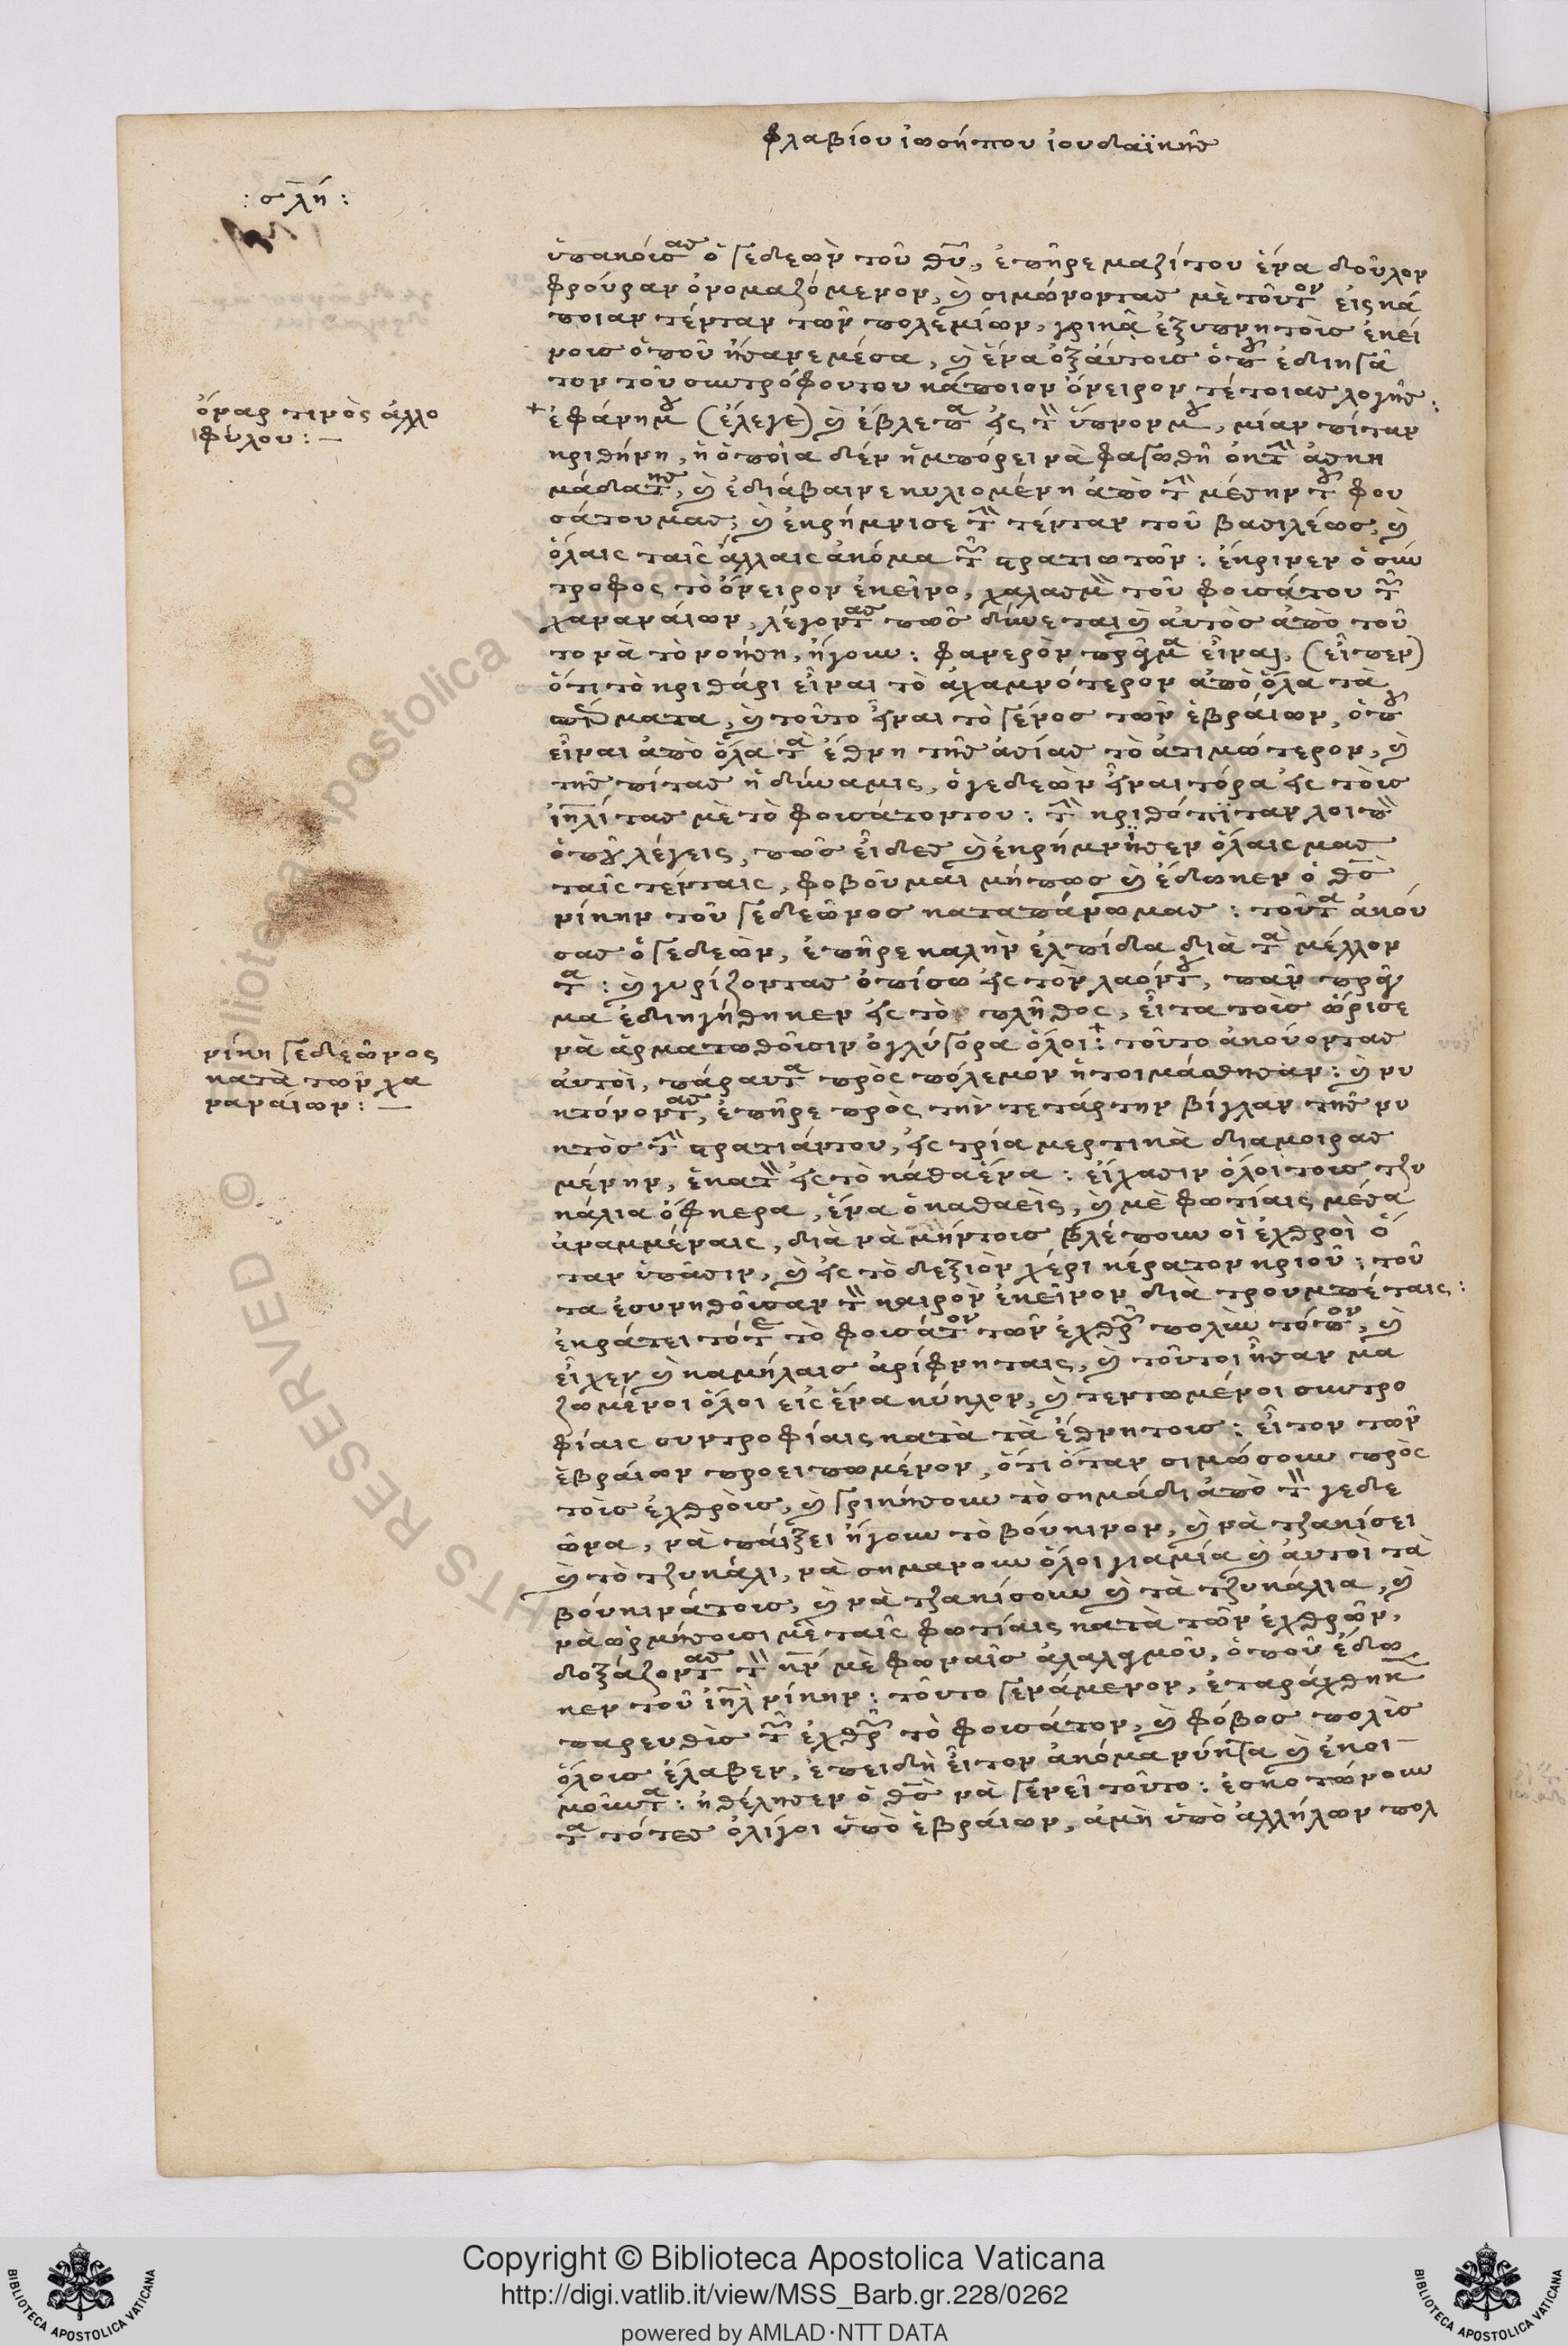 φλαβίου ἰωσήπου ἰουδαϊκῆς
: σλή :
ὑπακούσας ὁ γεδεὼν τοῦ θῦ, ἐπῆρε μαζίτου ἕνα δοῦλον
φρούραν ὀνομαζόμενον, ϗ σιμώνοντας μὲ τοῦτον εἰς κά
ποιαν τένταν τῶν πολεμίων, γρικᾶ ἐξυπνητοὺς ἐκεί
νους ὁποῦ ἦσανε μέσα, ϗ ἕνα ὀξάυτους ὁποῦ ἐδιηγᾶ
τον τοῦ συντρόφουτου κάποιον ὄνειρον τέτοιας λογῆς :
ὄναρ τινὸς ἀλλο
φύλου : —
ἐφάνημου (ἔλεγε) ϗ ἔβλεπα εἰς τὸν ὕπνονμου, μίαν πίταν
κριθήνη, ἡ ὁποῖα δὲν ἠμπόρει νὰ φαγωθῆ ὀκτὴν ἀσχη
μάδατης, ϗ ἐδιάβαινε κυλιομένη ἀπὸ τὴν μέσην τοῦ φου
σάτουμας, ϗ ἐκρήμνισε τὴν τένταν τοῦ βασιλέως, ϗ
ὅλαις ταῖς ἄλλαις ἀκόμα τῶν στρατιωτῶν : ἔκρινεν ὁ σύν
τροφος τὸ ὄνειρον ἐκεῖνο, χαλασμὸν τοῦ φουσάτου τῶν
χαναναίων, λέγοντας πῶς δύνεται ϗ αὐτὸς ἀπὸ τοῦ
το νὰ τὸ νοήση, ἤγουν : φανερὸν πρᾶγμα εἶναι, (εἶπεν)
ὅτι τὸ κριθάρι εἶναι τὸ ἀχαμνότερον ἀπὸ ὅλα τὰ
τοῦτο εἶναι τὸ γένος τῶν ἑβραίων, ὁποῦ
εἶναι ἀπὸ ὅλα τὰ ἔθνη τῆς ἀσίας τὸ ἀτιμώτερον, ϗ
τῆς πίτας ἡ δύναμις, ὁ γεδεὼν εἶναι τόρα εἰς τοὺς
ἰηλίτας μὲ τὸ φουσάτοντου : τὴν κριθόπιταν λοιπὸν
ὁποῦ λέγεις, πῶς εἶδες ϗ ἐκρήμνησεν ὅλαις μας
ταῖς τένταις, φοβοῦμαι μήπως ϗ ἔδωκεν ὁ θς
νίκην τοῦ γεδεῶνος καταπάνωμας : τοῦτα ἀκού
σας ὁ γεδεὼν, ἐπῆρε καλὴν ἐλπίδα διὰ τὰ μέλλον
τα : ϗ γυρίζοντας ὀπίσω εἰς τὸν λαόντου, πᾶν πρᾶγ
μα ἐδιηγήθηκεν εἰς τὸ πλῆθος, εἶτα τοὺς ὥρισε
νίκη γεδεῶνος
κατὰ τῶν χα
ναναίων : —
νὰ ἀρματωθοῦσιν ὀγλύγορα ὅλοι : τοῦτο ἀκούοντας
αὐτοὶ, πάραυτα πρὸς πόλεμον ἡτοιμάσθησαν : ϗ νυ
κτόνοντας, ἐπῆρε πρὸς τὴν τετάρτην βίγλαν τῆς νυ
κτὸς τὴν στρατιάντου, εἰς τρία μερτικὰ διαμοιρας
μένην, ἑκατὸν εἰς τὸ κάθαένα : εἴχασιν ὅλοι τους τζυ
κάλια ὄφκερα, ἕνα ὁ καθαεὶς, ϗ μὲ φωτίαις μέσα
ἀναμμέναις, διὰ νὰ μήντους βλέπουν οἱ ἐχθροὶ ὅ
ταν ὑπᾶσιν, ϗ εἰς τὸ δεξιὸν χέρι κέρατον κριοῦ : τοῦ
τα ἐσυνηθοῦσαν τὸν καιρὸν ἐκεῖνον διὰ τρουμπέταις :
ἐκράτει τότε τὸ φουσάτον τῶν ἐχθρῶν πολὺν τόπον, ϗ
εἶχεν ϗ καμήλαις ἀρίφνηταις, ϗ τοῦτοι ἦσαν μα
ζωμένοι ὅλοι εἰς ἕνα κύκλον, ϗ τεντωμένοι συντρο
φίαις συντροφίαις κατὰ τὰ ἔθνητους : εἶτον τῶν
ἑβραίων προειπωμένον, ὅτι ὅταν σιμώσουν πρὸς
τοὺς ἐχθροὺς, ϗ γρικήσουν τὸ σημάδι ἀπὸ τὸν γεδε
ῶνα, νὰ πάιξει ἤγουν τὸ βούκινον, ϗ νὰ τζακίσει
ϗ τὸ τζυκάλι, νὰ σημανουν ὅλοι γιαμία ϗ αὐτοι τὰ
βούκινάτους, ϗ νὰ τζακίσουν ϗ τὰ τζυκάλια, ϗ
νὰ ὁρμήσουσι μὲ ταῖς φωτίαις κατὰ τῶν ἐχθρῶν,
δοξάζοντας τὸν κν μὲ φωναῖς ἀλαλαγμοῦ, ὁποῦ ἔδω
κεν τοῦ ἰηλ νίκην : τοῦτο γενάμενον, ἐταράχθηκε
παρευθὺς τῶν ἐχθρῶν τὸ φουσάτον, ϗ φόβος πολὺς
ὅλους ἔλαβεν, ἐπειδὴ εἶτον ἀκόμα νύκτα ϗ ἐκοι
μοῦντα : ἠθέλησεν ὁ θς νὰ γενεῖ τοῦτο : ἐσκοτώνουν
τα τότες ὀλίγοι ὑπὸ ἑβραίων, ἀμὴ ὑπὸ ἀλλήλων πολ
Copyright © Biblioteca Apostolica Vaticana
http://digi.vatlib.it/view/MSS_Barb.gr.228/0262
powered by AMLAD·NTT DATA
BIBLIOTECA APOSTOLICA VATICANA
BIBLIOTECA APOSTOLICA VATICANA